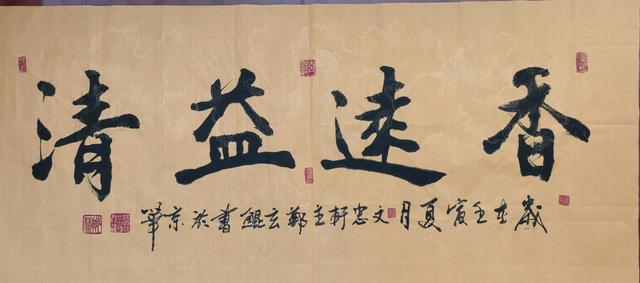 香遠益清
歲在壬寅夏月文忠軒主鄭玄鯤書於京華